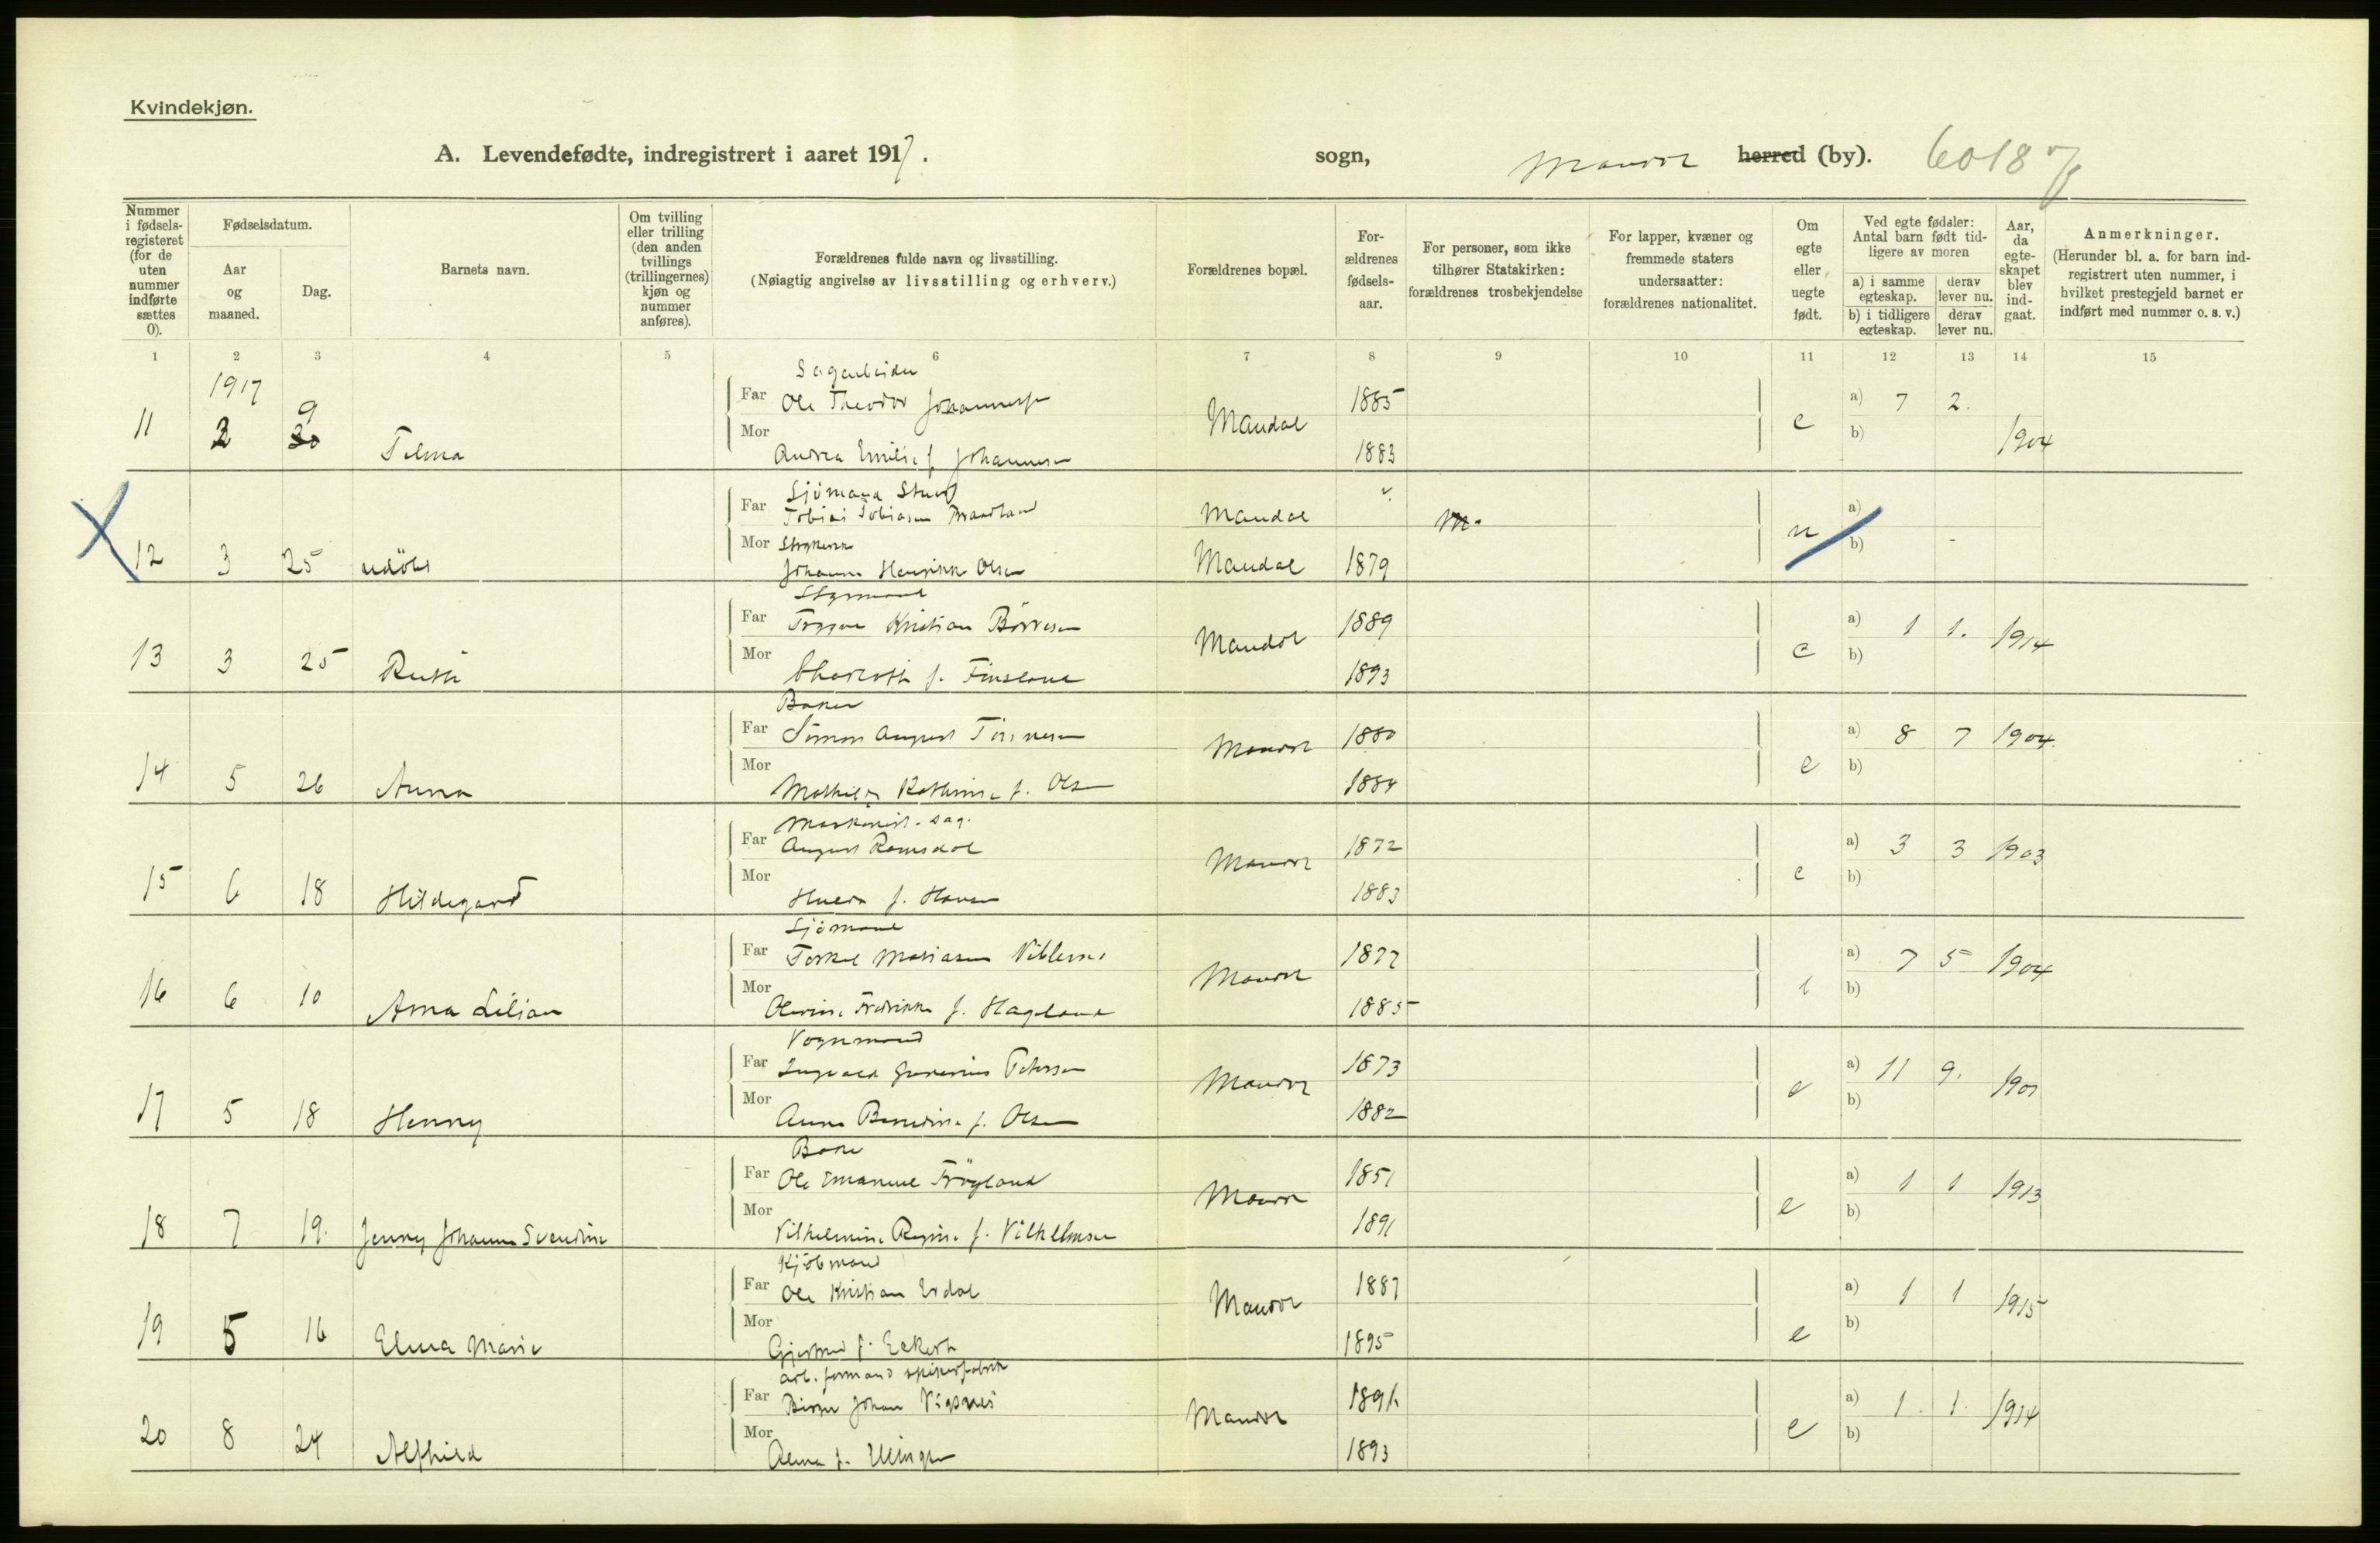 Kvindekjøn.
A. Levendefødte, indregistrert i aaret 1917. sogn, Mandal herred (by). 6018
Nummer i fødsels-registeret (for de uten nummer indførte sættes 0).
Fødselsdatum.
Aar og maaned.
Dag.
Barnets navn.
Om tvilling eller trilling (den anden tvillings (trillingernes) kjøn og nummer anføres).
Forældrenes fulde navn og livsstilling.
(Nøiagtig angivelse av livsstilling og erhverv.)
Forældrenes bopæl.
For-ældrenes fødsels-aar.
For personer, som ikke tilhører Statskirken: forældrenes trosbekjendelse
For lapper, kvæner og fremmede staters undersaatter: forældrenes nationalitet.
Om egte eller uegte født.
Ved egte fødsler: Antal barn født tid-ligere av moren
a) i samme egteskap. derav lever nu.
b) i tidligere egteskap. derav lever nu.
Aar, da egte-skapet blev ind-gaat.
Anmerkninger.
(Herunder bl. a. for barn ind-registrert uten nummer, i hvilket prestegjeld barnet er indført med nummer o. s. v.)
1 2 3 4 5 6 7 8 9 10 11 12 13 14 15
1917
Sagarbeider
Far Ole Theodor Johannessen 1885 a) 7 2.
11 2 30 9 Telma Mandal e 1904
Mor Andrea Emilie f. Johannesen 1883 b)
Sjömand
Far Tobias Tobiasen Braadland Mandal a)
12 3 25 udöbt u
Mor Johanne Henrikke Olsen Mandal 1879 b) -
Styrmand
Far Trygve Kristian Börresen 1889 a) 1 1. 1914
13 3 25 Ruth Mandal e
Mor Charlotte f. Finsland 1893 b)
Baker
Far Simon August Tönnesen 1880 a) 8 7 1904
14 5 26 Anna Mandal e
Mor Mathilde Kathrine f. Olsen 1884 b)
Maskinist. sag.
Far August Ramsdal 1872 a) 3 3 1903
15 6 18 Hildegard Mandal e
Mor Hulda f. Hansen 1883 b)
Sjömand
Far Torkel Mathiasen 1877 a) 7 5 1904
16 6 10 Anna Lilian Mandal
Mor Olevine Fredrikke f. Hageland 1885 b)
Vognmand
Far Ingvald Petersen 1873 a) 11 9.
17 5 18 Henny Mandal e
Mor Anne Benedine f. Olsen 1882 b)
Far Ole Emanuel Fröyland 1851 a) 1 1 1913
18 7 19. Jenny Johanne Svendine Mandal e
Mor Vilhelmine Regine f. Vilhelmsen 1891 b)
Kjöbmand
Far Ole Kristian Erdal 1887 a) 1 1 1915
19 5 16 Elma Marie Mandal e
Mor Gjertrud f. Eckert 1895 b)
arb. formand spikerfabrik
Far Birger Johan Vigsnes 1891 a) 1. 1. 1914
20 8 24 Alfhild Mandal e
Mor Alma f. Ellingsen 1893 b)